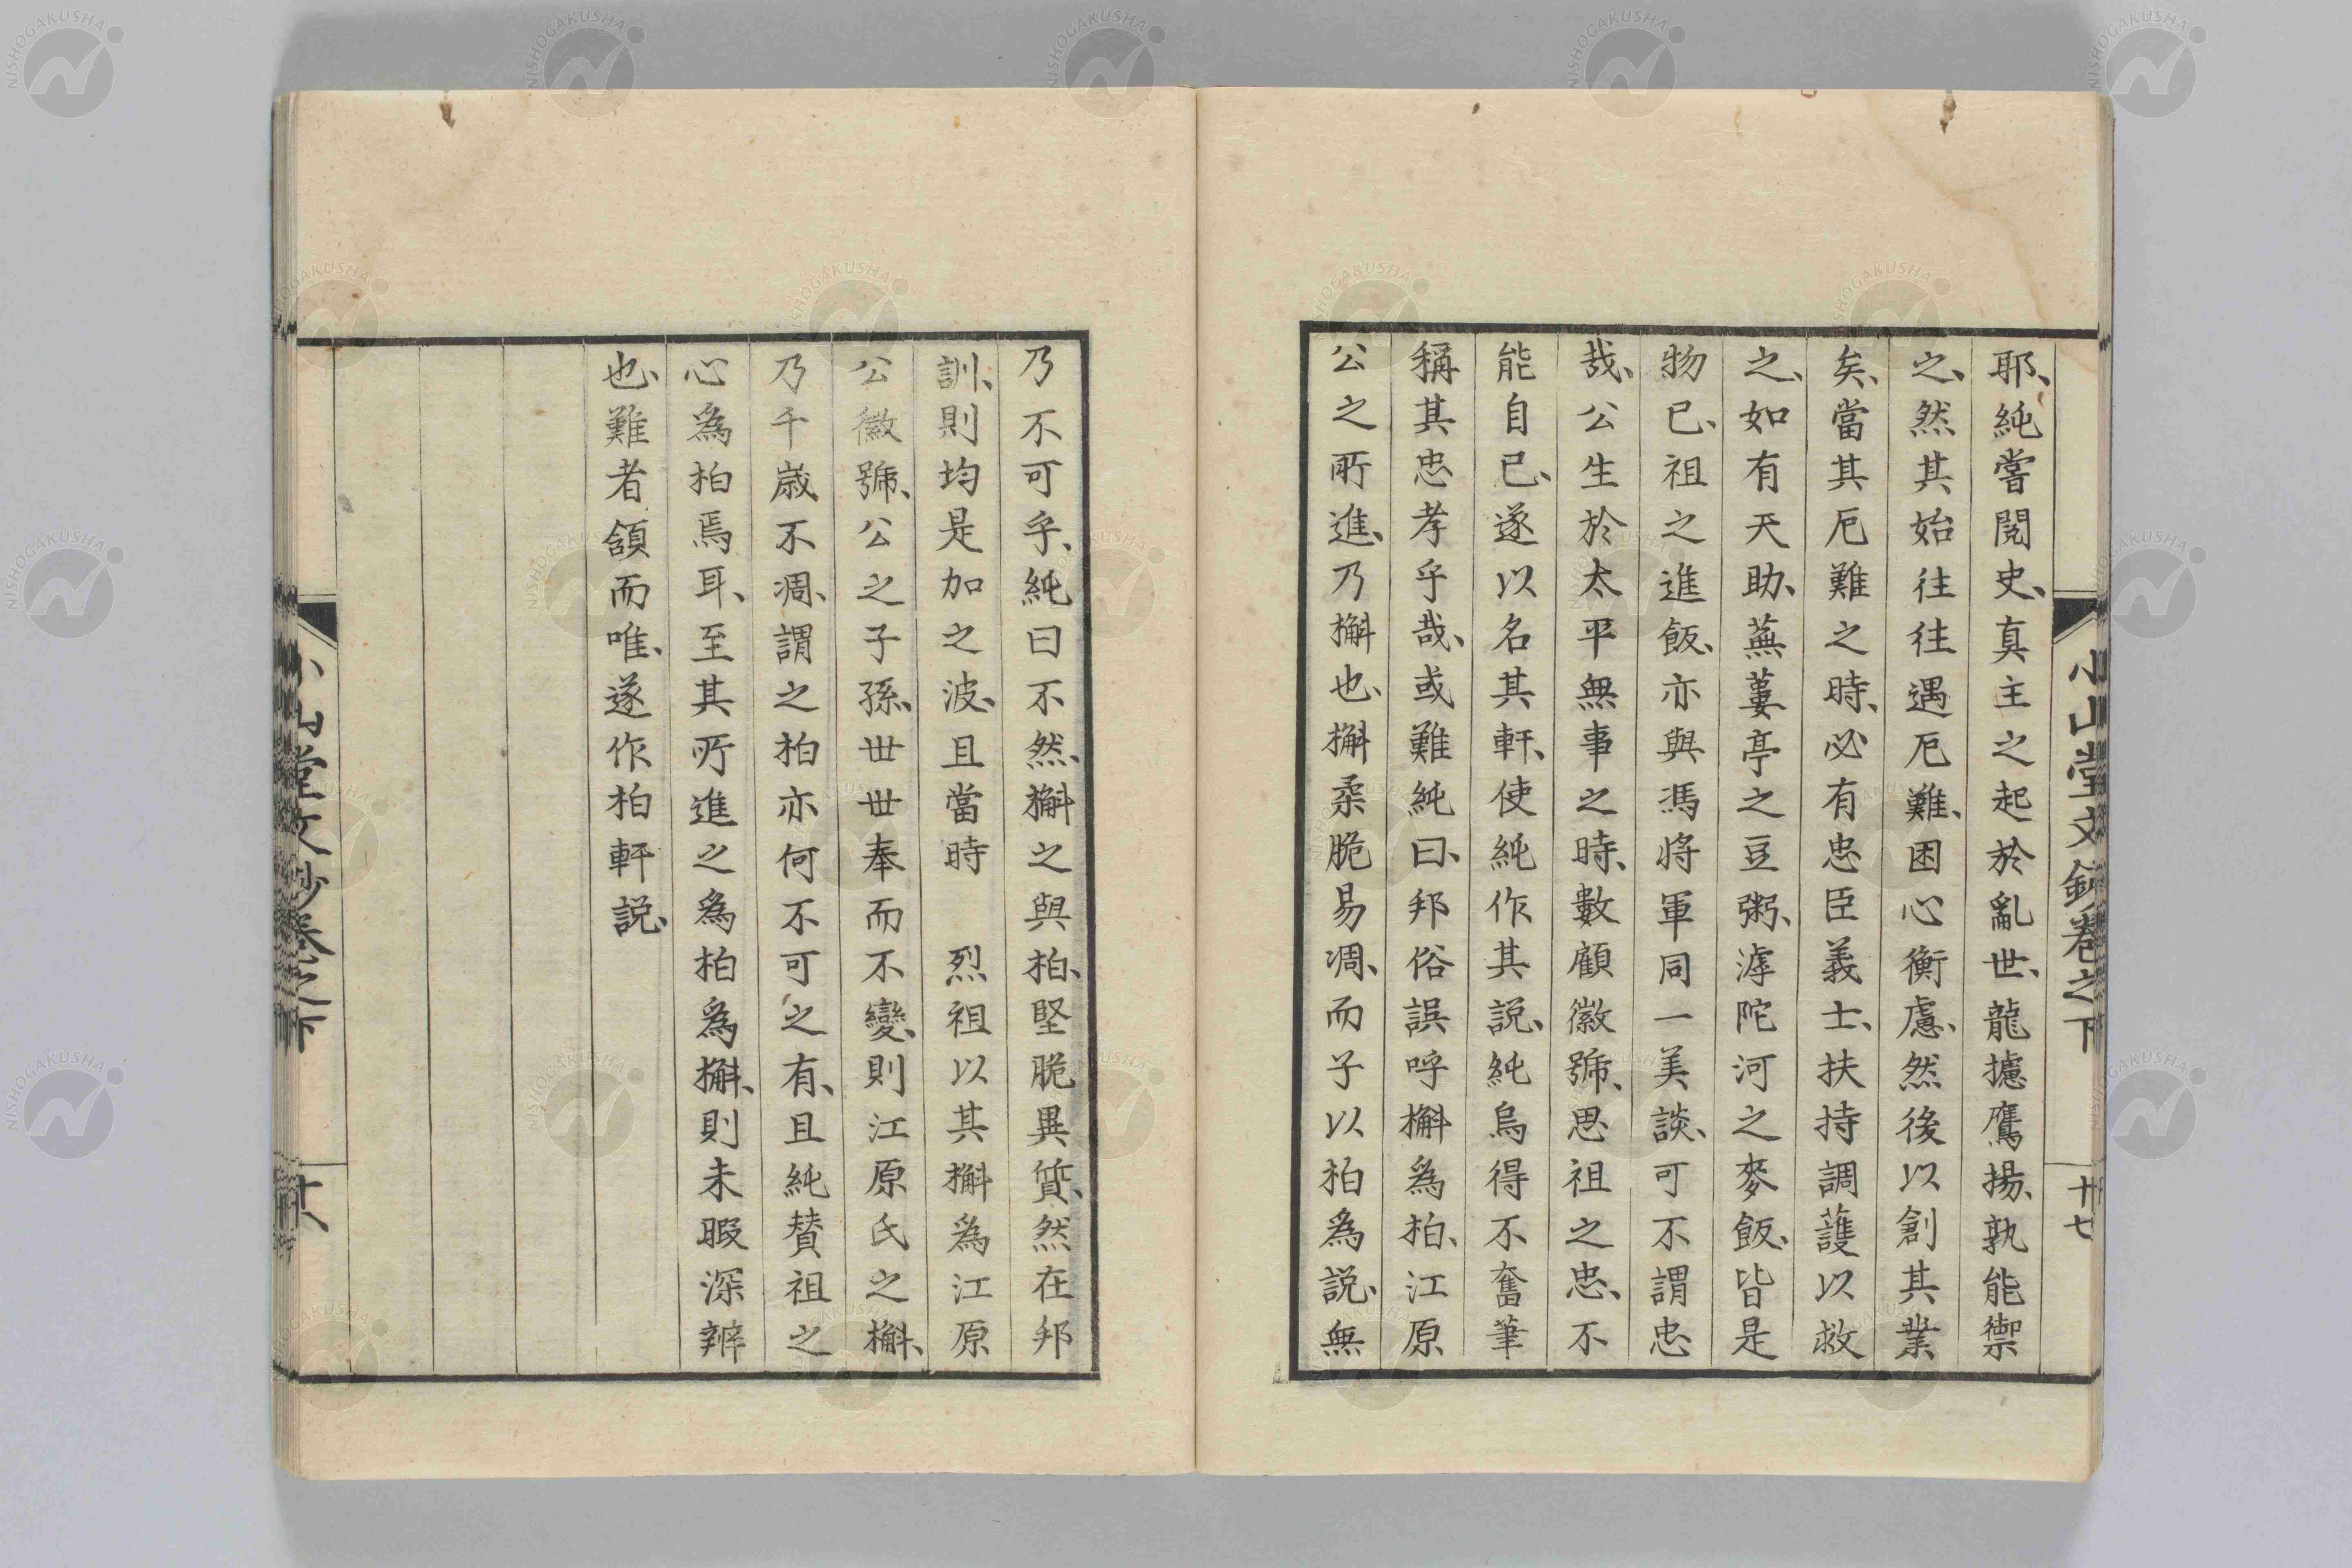 小山堂文鈔卷之下
十七
耶、純嘗閱史、真主之起於亂世、龍攄鷹揚、孰能禦
之、然其始往往遇厄難、困心衡慮、然後以創其業
矣、當其厄難之時、必有忠臣義士、扶持調護以救
之、如有天助、蕪蔞亭之豆粥、滹陀河之麥飯、皆是
物已、祖之進飯、亦與馮將軍同一美談、可不謂忠
哉、公生於太平無事之時、數顧徽號、思祖之忠、不
能自已、遂以名其軒、使純作其説、純烏得不奮筆
稱其忠孝乎哉、或難純曰、邦俗誤呼槲為柏、江原
公之所進、乃槲也、槲柔脆易凋、而子以柏為説、無
乃不可乎、純曰不然、槲之與柏、堅脆異質、然在邦
訓、則均是加之波、且當時 烈祖以其槲為江原
公徽號、公之子孫、世世奉而不變、則江原氏之槲、
乃千歳不凋、謂之柏亦何不可之有、且純賛祖之
心為柏焉耳、至其所進之為柏為槲、則未暇深辨
也、難者頷而唯、遂作柏軒説、
小山堂文鈔卷之下
十八
NISHOGAKUSHA